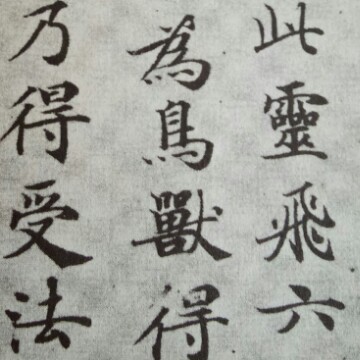 此靈飛六
為鳥獸得
乃得受法